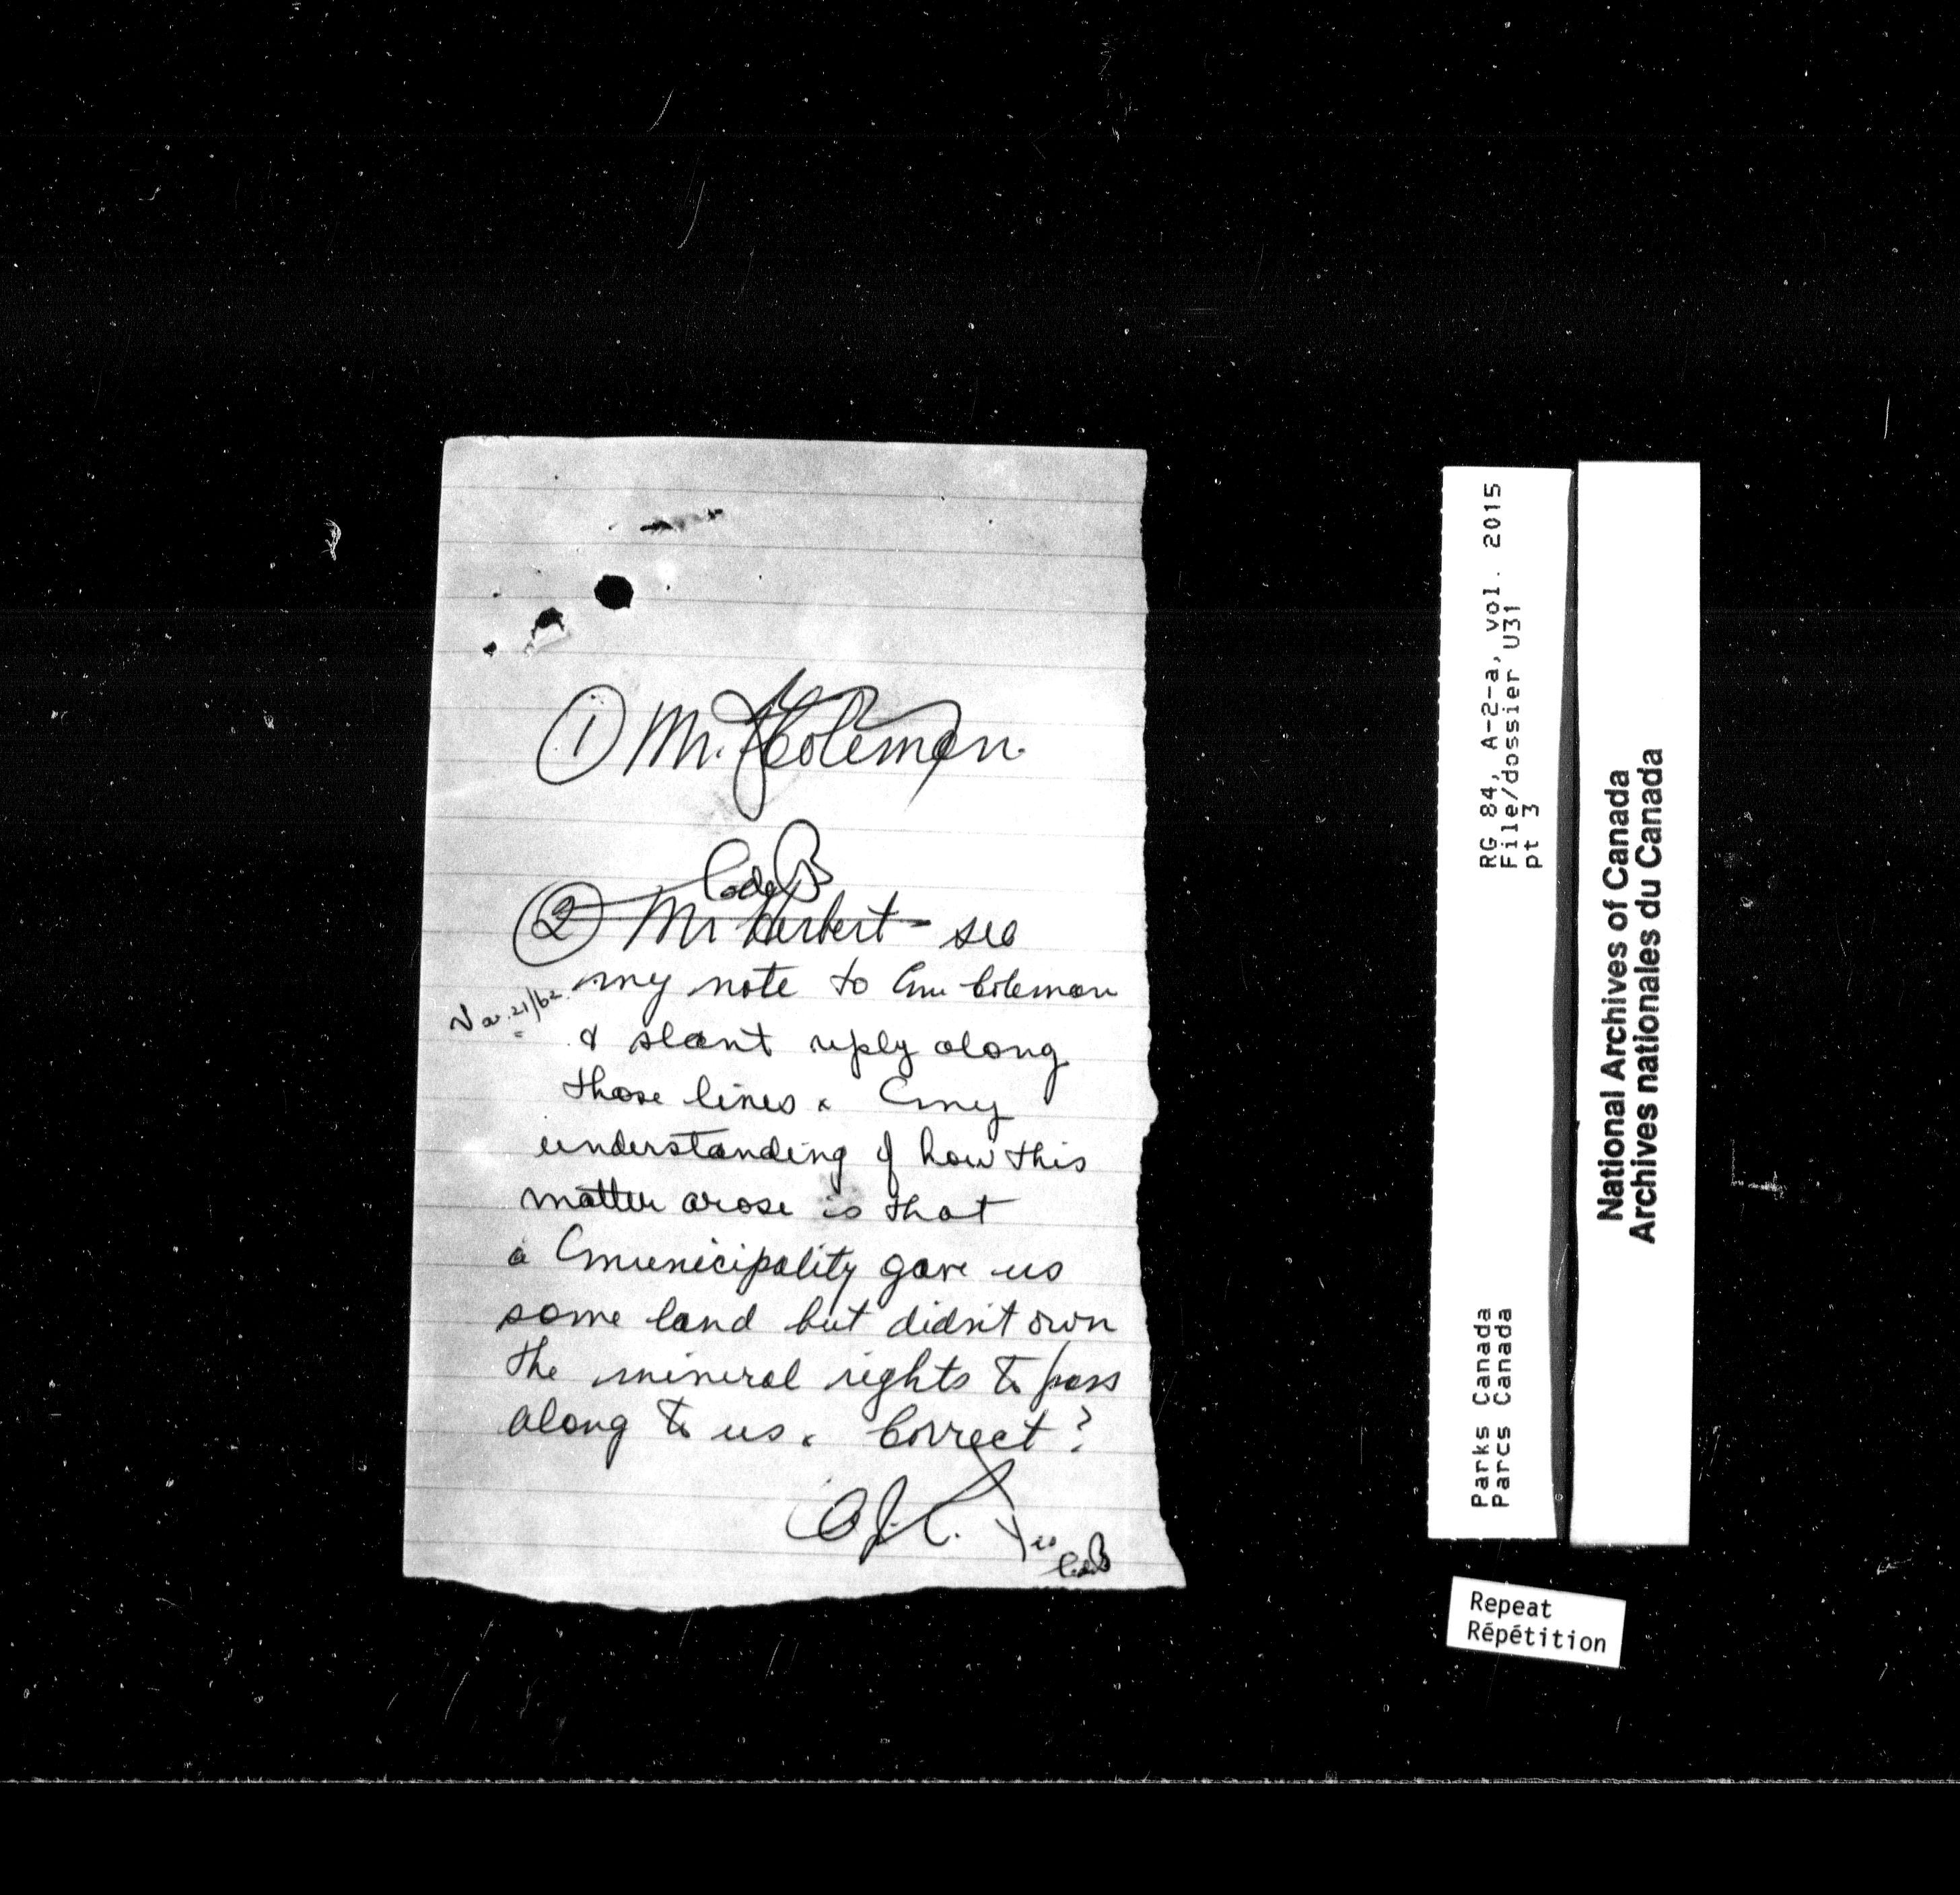 ① Mr. Coleman.
② Mr Herbert - see
my note to Mr Coleman
Nov. 21/62.
& slant reply along
those lines. My
understanding of how this
matter arose is that
a Municipality gave us
some land but didn't own
the mineral rights to pass
along to us. Correct?
Yes
RG 84, A-2-a, vol. 2015
File/dossier U31
pt 3
Parks Canada
Parcs Canada
National Archives of Canada
Archives nationales du Canada
Repeat
Répétition